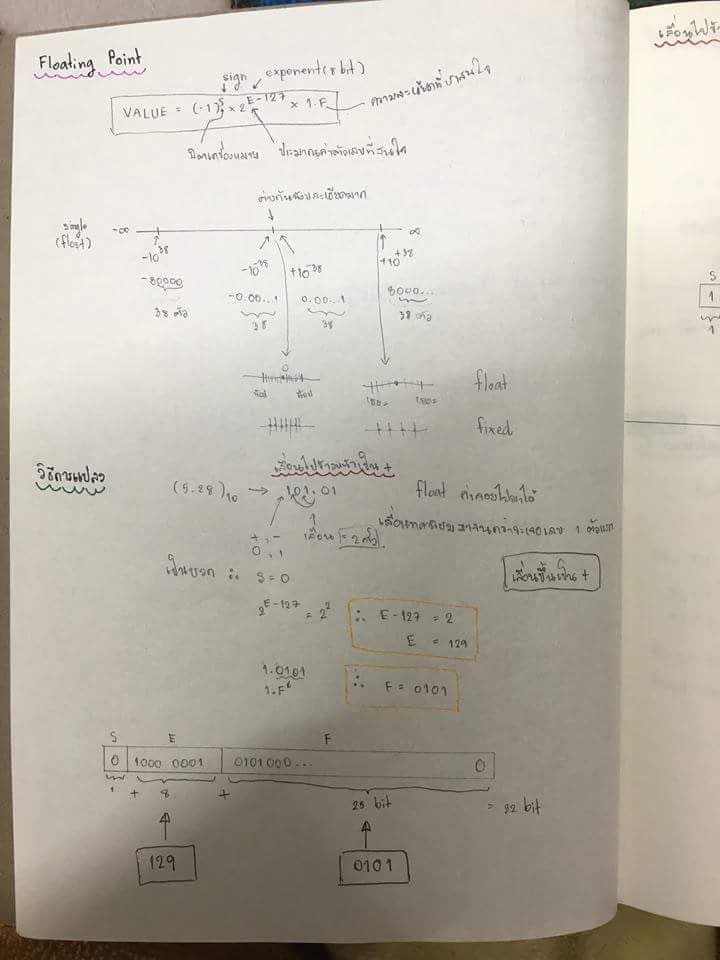 Floating Point
sign exponent(8 bit)
VALUE = (-1)^S × 2^E-127 × 1.F
ความละเอียดที่เราสนใจ
บิตเครื่องหมาย ประมาณค่าตัวเลขที่สนใจ
ต่างกันน้อยละเอียดมาก
single (float) -∞ ∞
-10^38 -10^-38 +10^-38 +10^+38
-80000 -0.00...1 0.00...1 8000...
38 ตัว 38 38 38 ตัว
0
float
fixed
วิธีการแปลง
เลื่อนไปข้างหน้าเป็น +
(5.28)10 → 101.01
float
+ , -
0 , 1
เลื่อน = 2 ตัว
เป็นบวก ∴ S = 0
เลื่อนขึ้นเป็น +
2^E-127 = 2^2
∴ E-127 = 2
E = 129
1.0101
1.F
∴ F = 0101
S E F
0 1000 0001 0101000... 0
1 + 8 + 23 bit = 32 bit
129
0101
เลื่อนไปข้
S
1
1